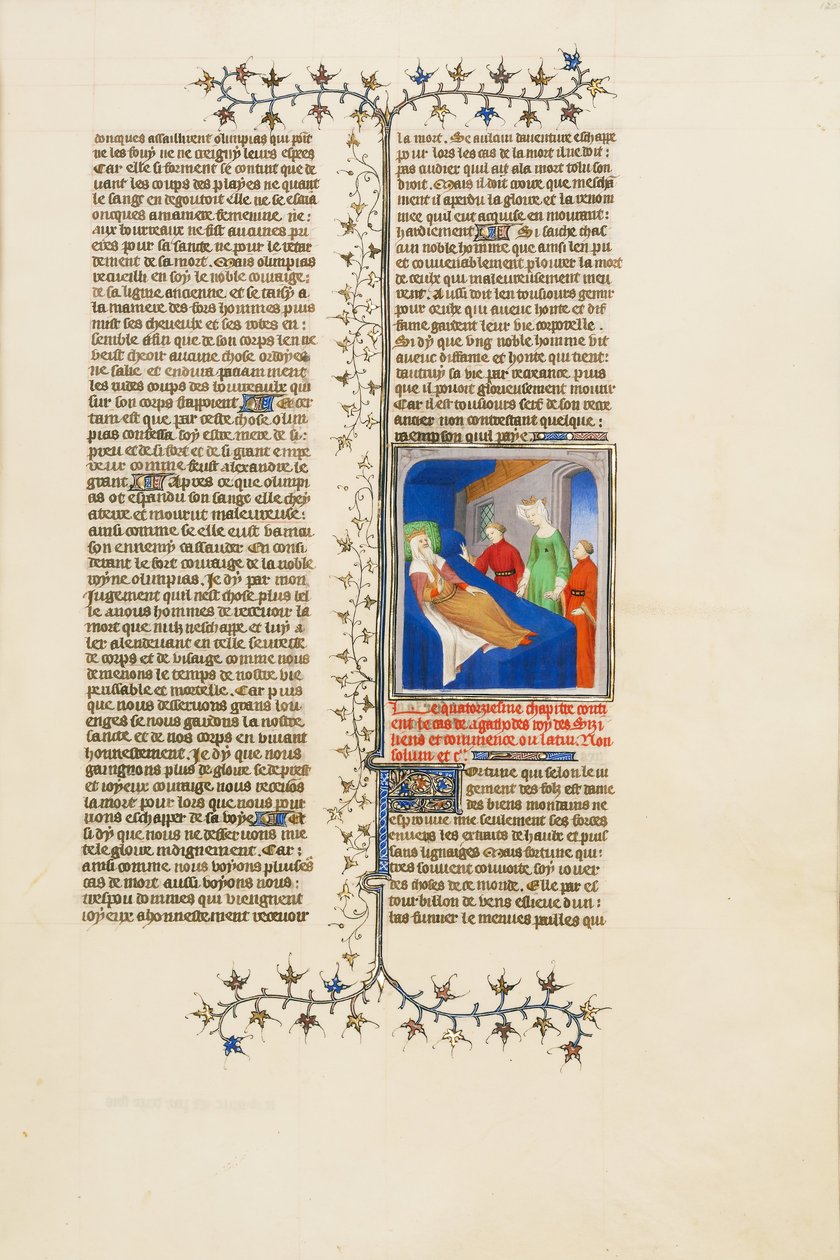 doncques assaillirent olimpias qui point
ne les fouy ne ne creigny leurs espees
Car elle si forment se contint que de
uant les coups des playes ne quant
le sang en degoutoit elle ne se escria
oncques a maniere femenine ne :
aux bourreaux ne fist aucunes pri
eres pour sa sante ne pour le retar
dement de sa mort. Mais olimpias
recueilli en soy le noble couraige :
de sa ligne ancienne et se taisy a
la maniere des fors hommes puis
mist ses cheueulx et ses robes en :
semble affin que de son corps len ne
veist cheoir aucune chose ordoyee
ne salie et endura paciamment
les rudes coups des bourreaulx qui
sur son corps frappoient Et cer
tain est que par ceste chose olim
pias confessa soy estre mere de si :
preu et de si fort et de si grant empe
reur comme feust alexandre le
grant Apres ce que olimpi
as ot espandu son sang elle chey
a terre et mourut maleureuse :
ainsi comme se elle eust vaincu
son ennemy cassander En consi
derant le fort couraige de la noble
royne olimpias. Je dy par mon
jugement quil nest chose plus bel
le a nous hommes de recevoir la
mort que nulz neschappe et luy a
ler alendeuant en telle seurete
de corps et de visaige comme nous
demenons le temps de nostre vie
perissable et mortelle. Car puis
que nous desseruons grans lou
enges se nous gardons la nostre
sante et de nos corps en viuant
honnestement. Je dy que nous
gaingnons plus de gloire se de prest
et ioyeux couraige nous receuons
la mort pour lors que nous pour
rions eschaper de sa voye Et
si dy que nous ne desseruons mie
tele gloire indignement. Car :
ainsi comme nous voyons pluiseurs
cas de mort aussi voyons nous :
trespou dommes qui viengnent
ioyeux a honnestement recevoir
la mort. Se aulcun dauenture eschappe
pour lors les cas de la mort il ne doit :
pas cuidier quil ait a la mort tolu son
droit. Mais il doit croire que mescha
ment il a perdu la gloire et la renom
mee quil eut acquise en mourant :
hardiement Si sache chas
cun noble homme que ainsi len pu
et conuenablement plourer la mort
de ceulx qui maleureusement meu
rent. Aussi doit len tousiours gemir
pour ceulx qui auecc honte et dif
fame gardent leur vie corporelle .
Si dy que vng noble homme vit
auecc diffame et honte qui tient :
dautruy sa vie par recreance puis
que il pouoit glorieusement mourir
Car il est tousiours serf de son recre
ancier non contrestant quelque :
raempson quil paye
Le quatorziesme chapitre conti
ent le cas de agathodes roy des Sizi
liens et commence ou latin. Non
solum et c
Fortune qui selon le iu
gement des folz est dame
des biens mondains ne
esprouue mie seulement ses forces
enuers les extrais de hault et puis
sans lignaiges Mais fortune qui :
tres souuent conuoite soy iouer
des choses de ce monde. Elle par es
tourbillon de vens eslieue dun :
bas fumier le menues pailles qui